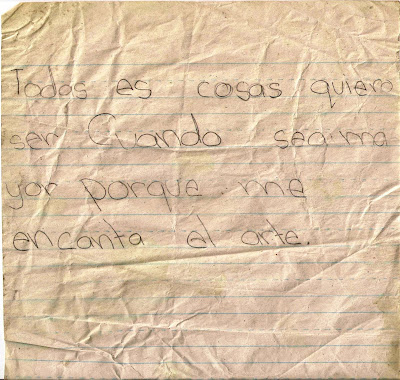 Todas es cosas quiero
ser Cuando sea ma
yor porque me
encanta el arte.